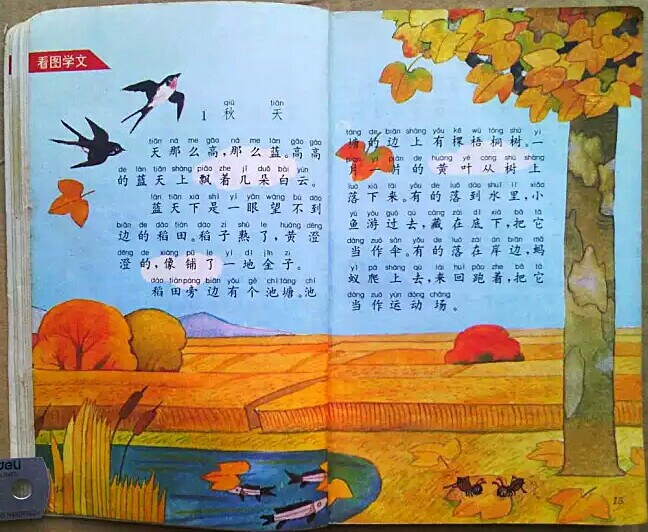 看图学文
qiū tiān
1 秋 天
tiān nà me gāo nà me lán gāo gāo
天那么高,那么蓝。高高
de lán tiān shàng piāo zhe jǐ duǒ bái yún
的蓝天上飘着几朵白云。
lán tiān xià shì yì yǎn wàng bú dào
蓝天下是一眼望不到
biān de dào tián dào zi shú le huáng dēng
边的稻田。稻子熟了,黄澄
dēng de xiàng pū le yí dì jīn zi
澄的,像铺了一地金子。
dào tián páng biān yǒu gè chí táng chí
稻田旁边有个池塘。池
táng de biān shàng yǒu kē wú tóng shù yí
塘的边上有棵梧桐树。一
piàn yí piàn de huáng yè cóng shù shàng
片一片的黄叶从树上
luò xià lái yǒu de luò dào shuǐ lǐ xiǎo
落下来。有的落到水里,小
yú yóu guò qù cáng zài dǐ xià bǎ tā
鱼游过去,藏在底下,把它
dàng zuò sǎn yǒu de luò zài àn biān mǎ
当作伞。有的落在岸边,蚂
yǐ pá shàng qù lái huí pǎo zhe bǎ tā
蚁爬上去,来回跑着,把它
dàng zuò yùn dòng chǎng
当作运动场。
15